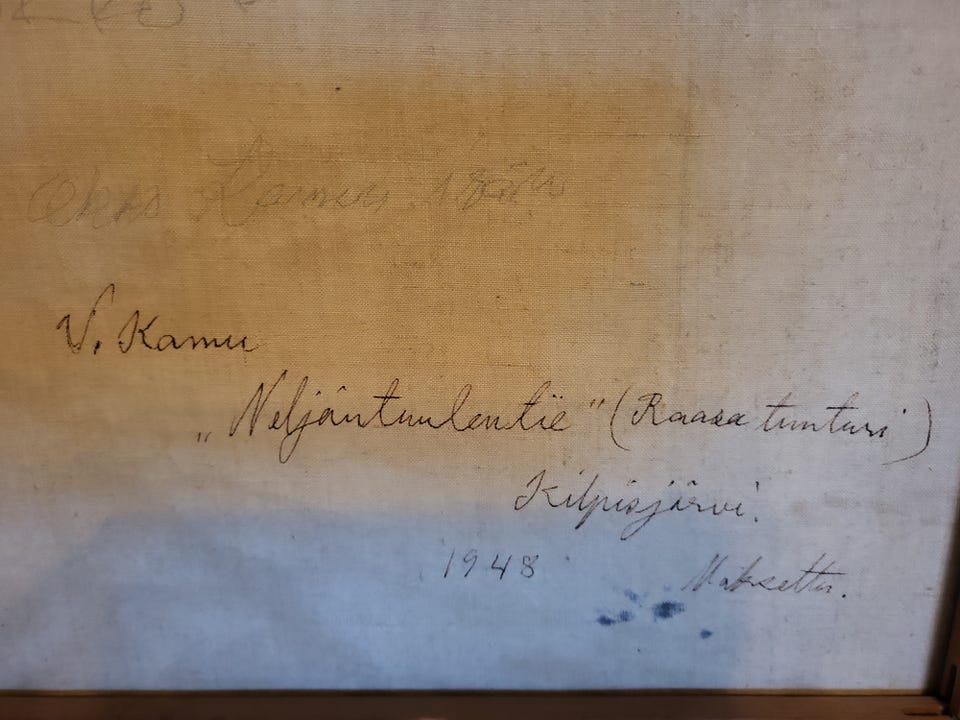 V. Kamu
„Neljäntuulentie" (Raasa tunturi)
Kilpisjärvi.
1948 Maksettu.